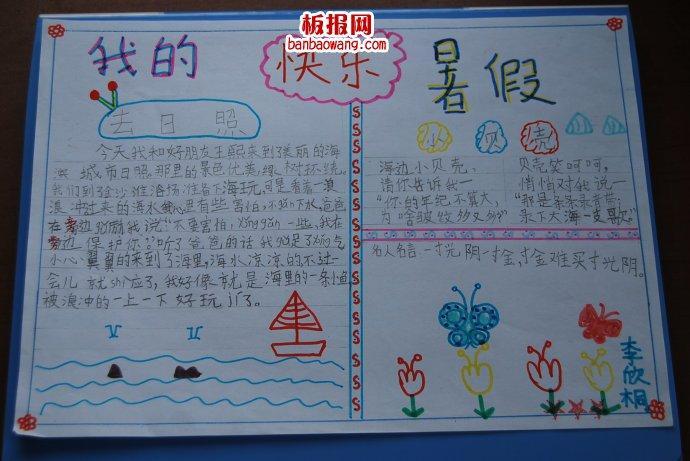 板报网
banbaowang.com
我的 快乐 暑假
去日照
今天我和好朋友王熙来到了美丽的海
滨城市日照,那里的景色优美,绿树环绕。
我们到金沙滩浴场准备下海玩,可是看着一浪
浪冲过来的海水,心里有些害怕,不敢下水,爸爸
在旁边鼓励我说:“不要害怕,yǒnggǎn一些,我在
旁边保护你。”听了爸爸的话我鼓足了yǒng气
小心翼翼的来到了海里,海水凉凉的不过一
会儿就shì应了,我好像就是海里的一条小鱼
被浪冲的一上一下好玩jí了。
小贝壳
海边小贝壳,
请你告诉我——
“你的年纪不算大,
为啥皱纹多又多?”
贝壳笑呵呵,
悄悄对我说——
“那是
录下大海一支歌。”
名人名言 一寸光阴一寸金,寸金难买寸光阴。
李欣桐